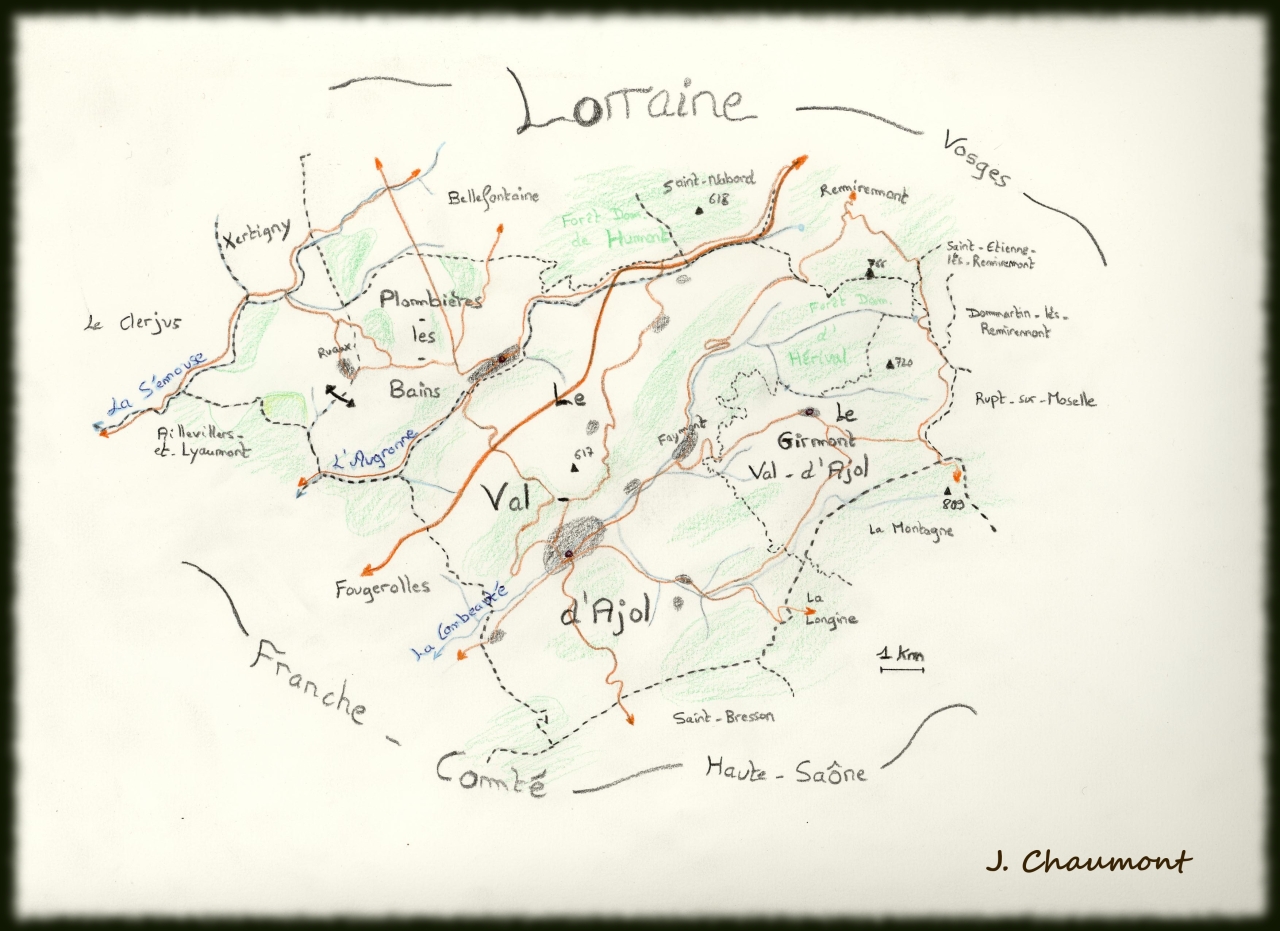 Lorraine
Vosges
Saint-Nabord
618
Remiremont
Bellefontaine
Xertigny
Forêt Dom.
de Humont
Saint-Etienne-
lès-Remiremont
766
Plombières
-
les
-
Bains
Forêt Dom.
d'
Hérival
Le Clerjus
Ruaux
Dommartin-lès-
Remiremont
720
La Sémouse
Le
Le
Girmont
Val-d'Ajol
Rupt-sur-Moselle
Aillevillers-
et-Lyaumont
L'Augronne
Faymont
617
Val
-
809
La Montagne
Fougerolles
La Combeauté
d'Ajol
La
Longine
1 Km
Franche-
Comté
Saint-Bresson
Haute-Saône
J. Chaumont